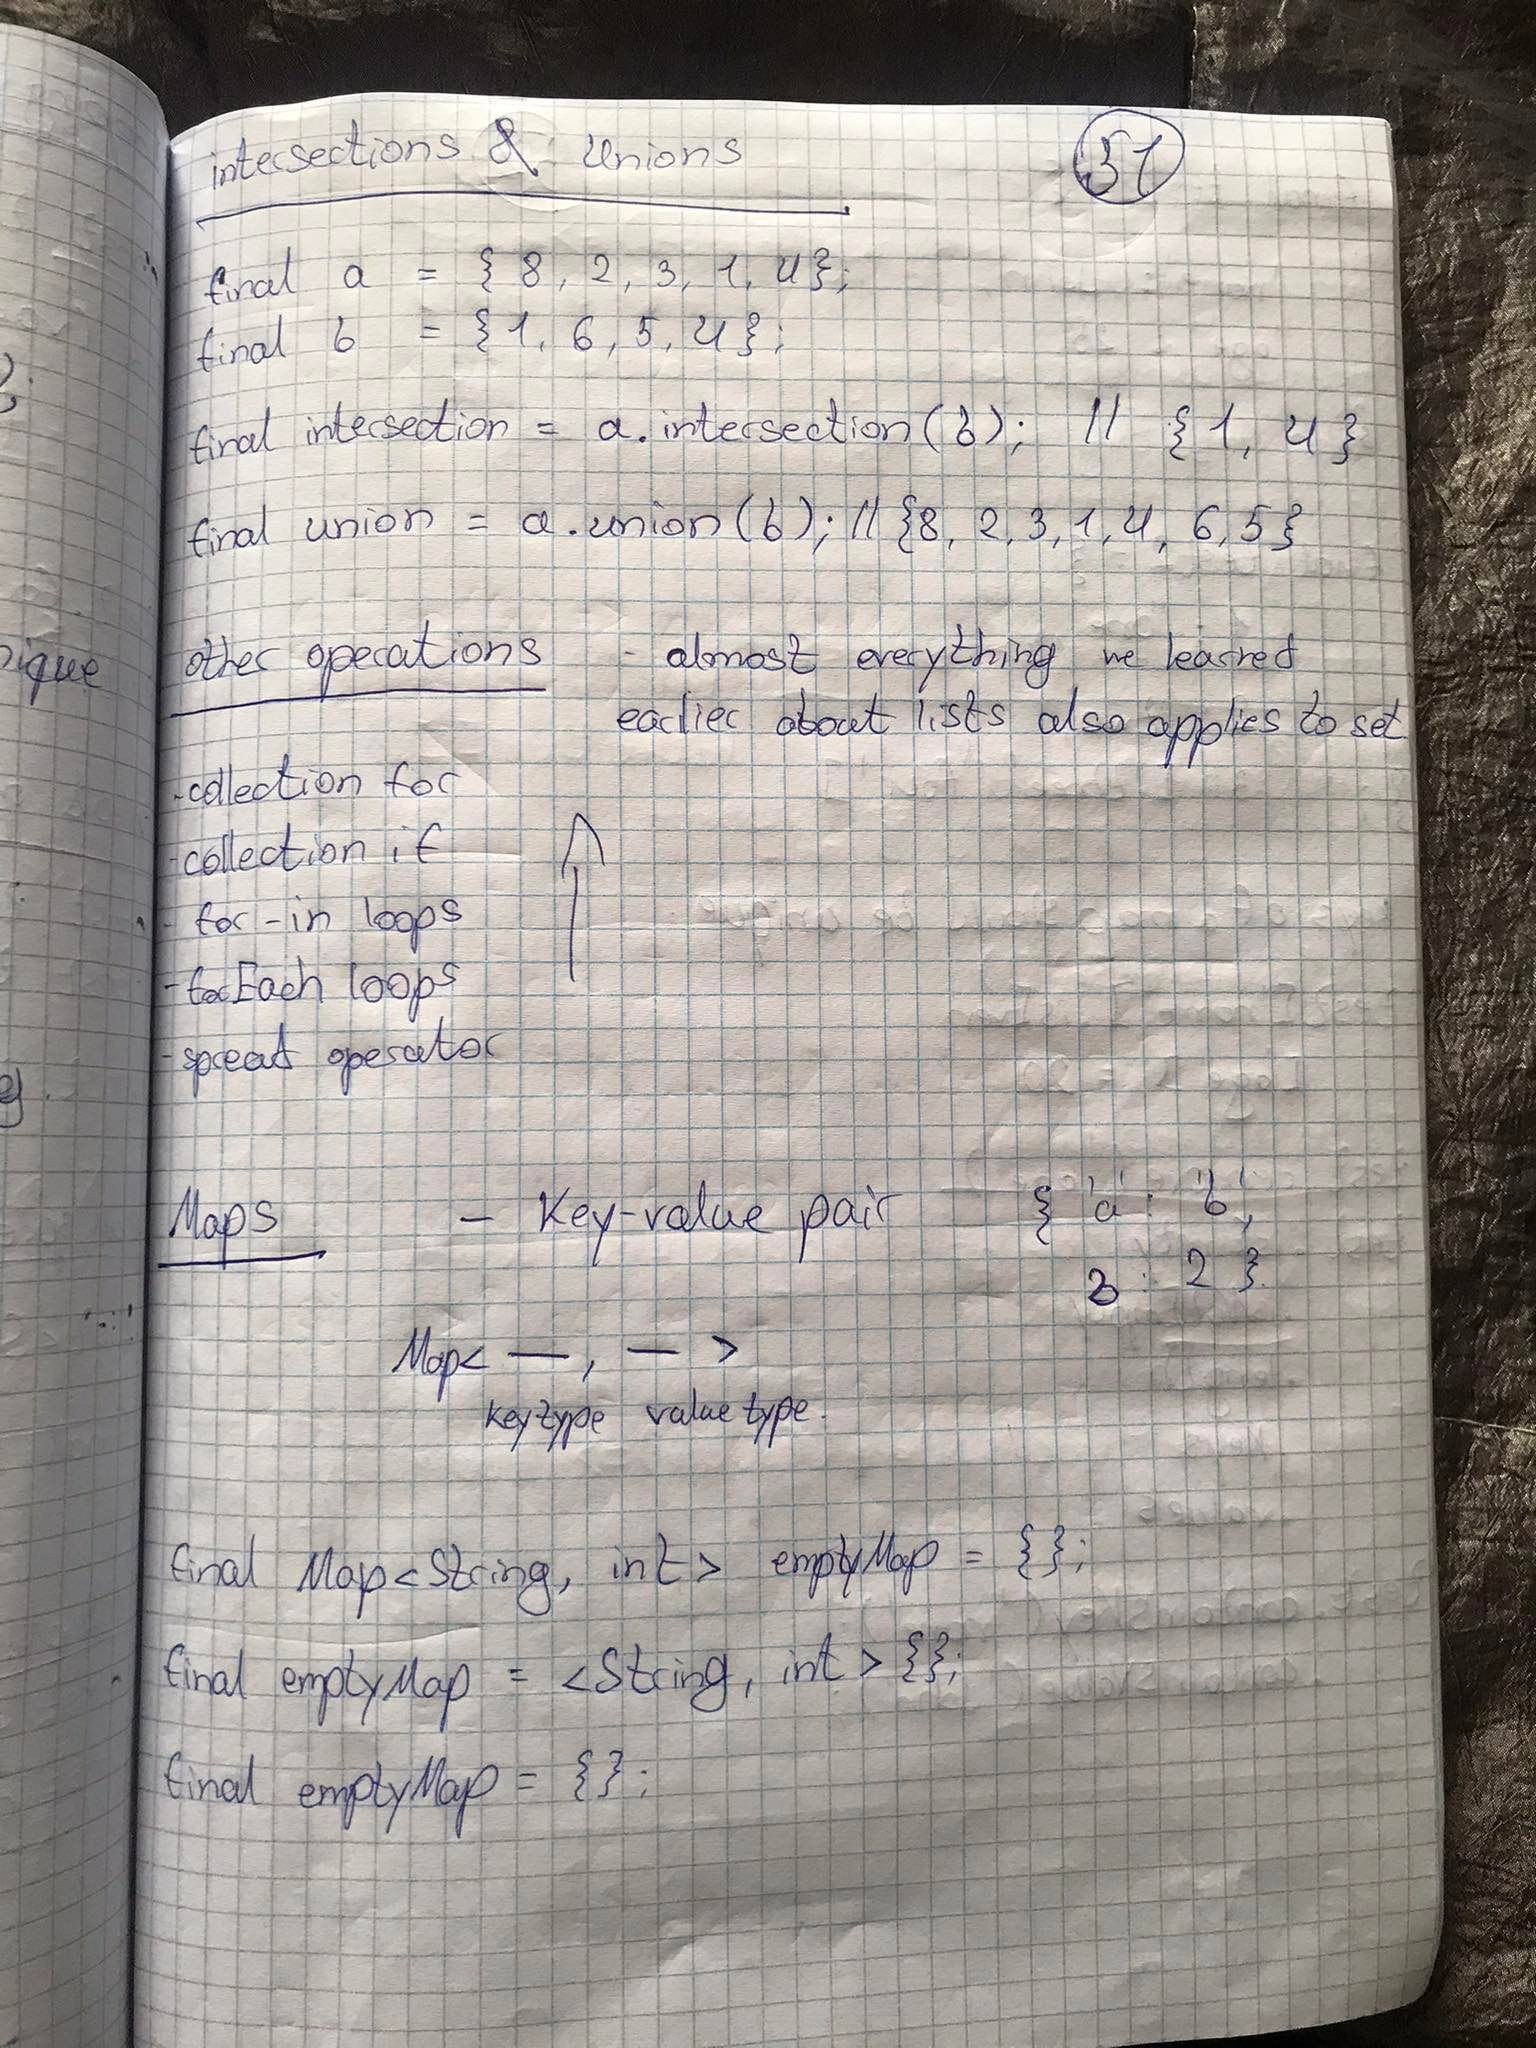 intersections & Unions
51
final a = { 8, 2, 3, 1, 4};
final b = {1, 6, 5, 4};
final intersection = a.intersection(b); // {1, 4}
final union = a.union(b); // {8, 2, 3, 1, 4, 6, 5}
other operations - almost everything we learned
earlier about lists also applies to set
-collection for
-collection if
- for-in loops
-forEach loops
-spreat operator
Maps - Key-value pair { 'a' : 'b',
3 : 2 }
Map< —, — >
Keytype value type
final Map<String, int> emptyMap = {};
final emptyMap = <String, int>{};
final emptyMap = {};
ique